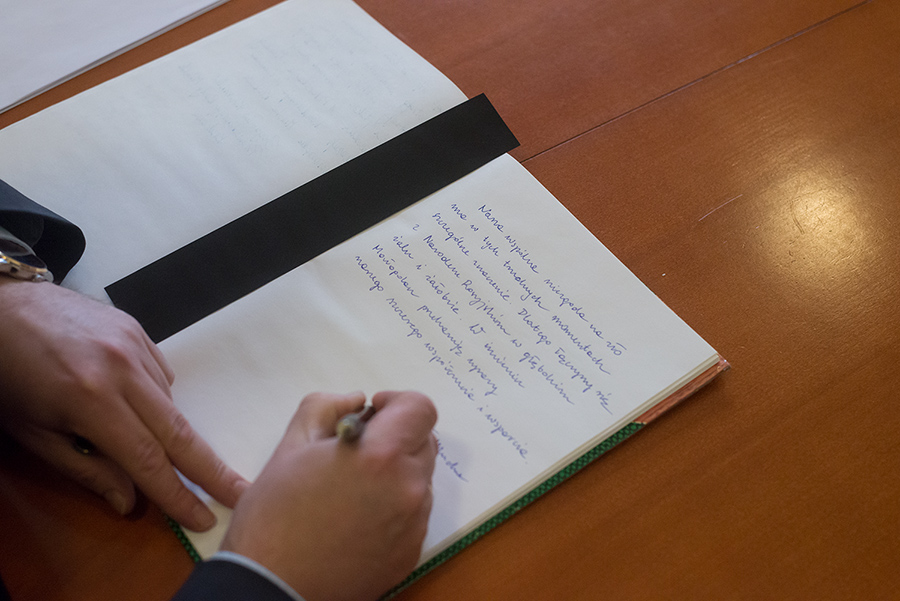 Nasza wspólna niezgoda na zło
ma w tych trudnych momentach
szczególne znaczenie. Dlatego łączymy się
z Narodem Rosyjskim w głębokim
żalu i żałobie. W imieniu
Małopolan przekazuję wyrazy
naszego szczerego współczucia i wsparcia.